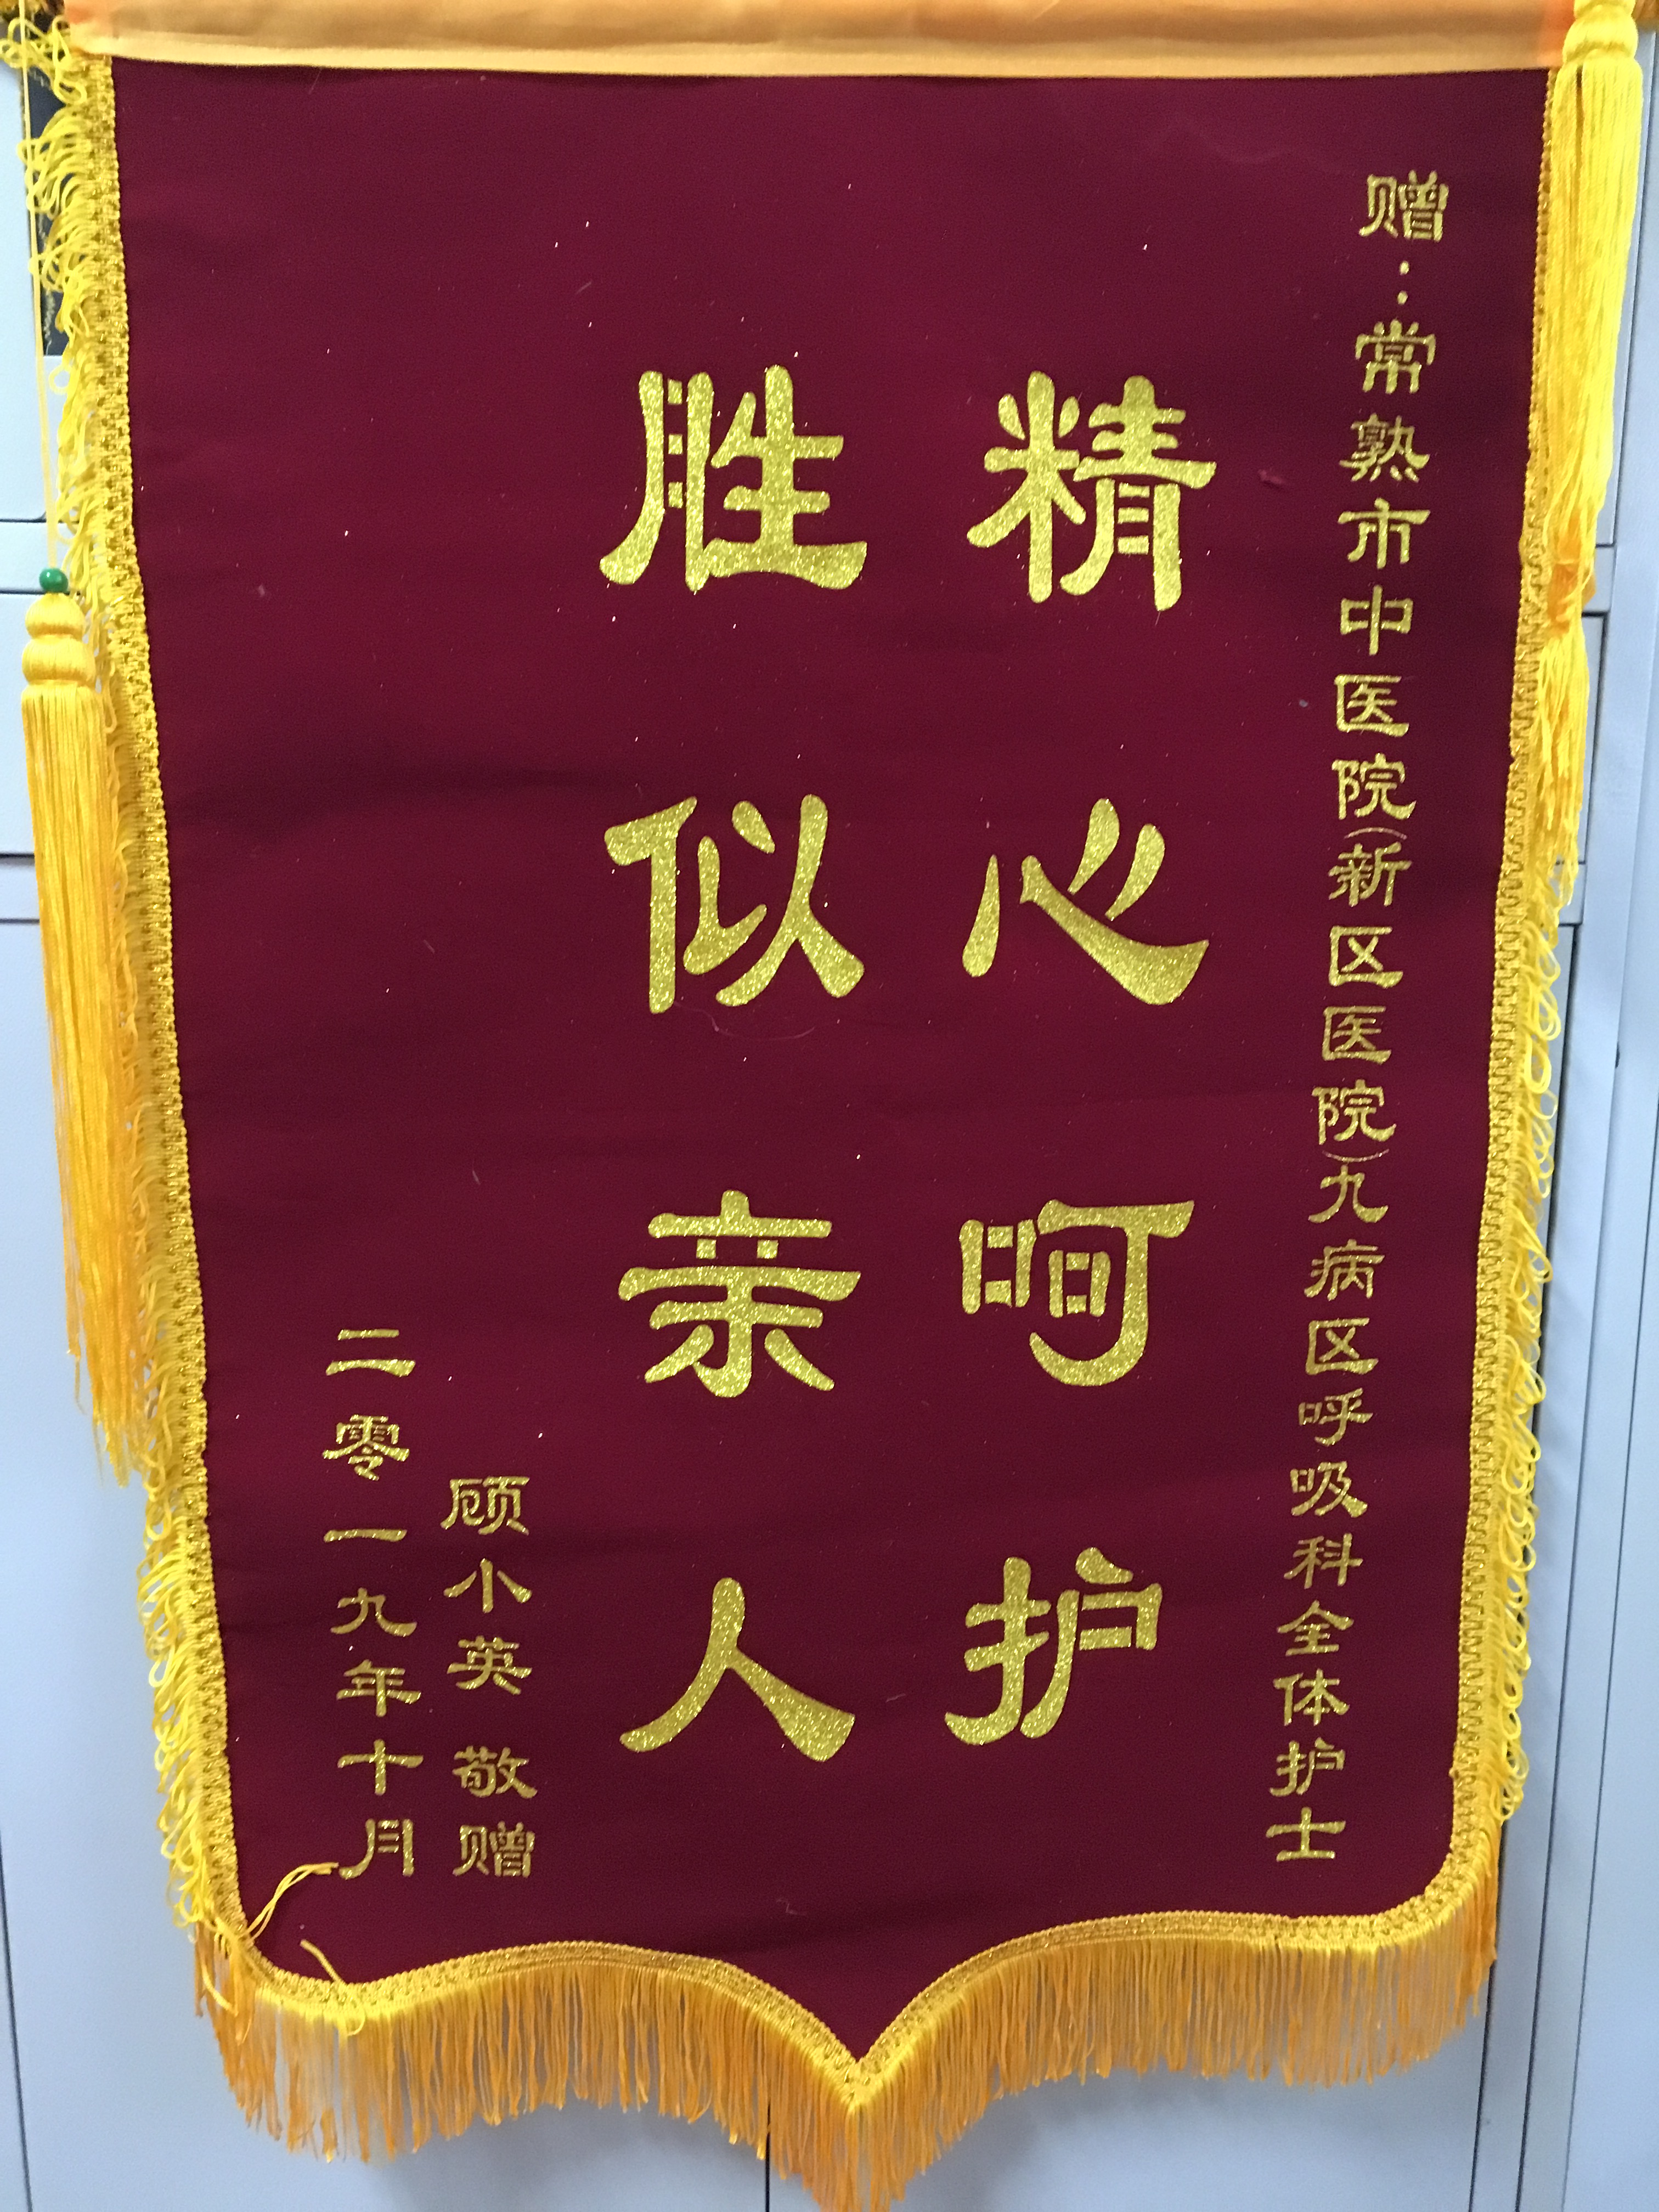 赠:常熟市中医院(新区医院)九病区呼吸科全体护士
精心呵护
胜似亲人
顾小英 敬赠
二零一九年十月